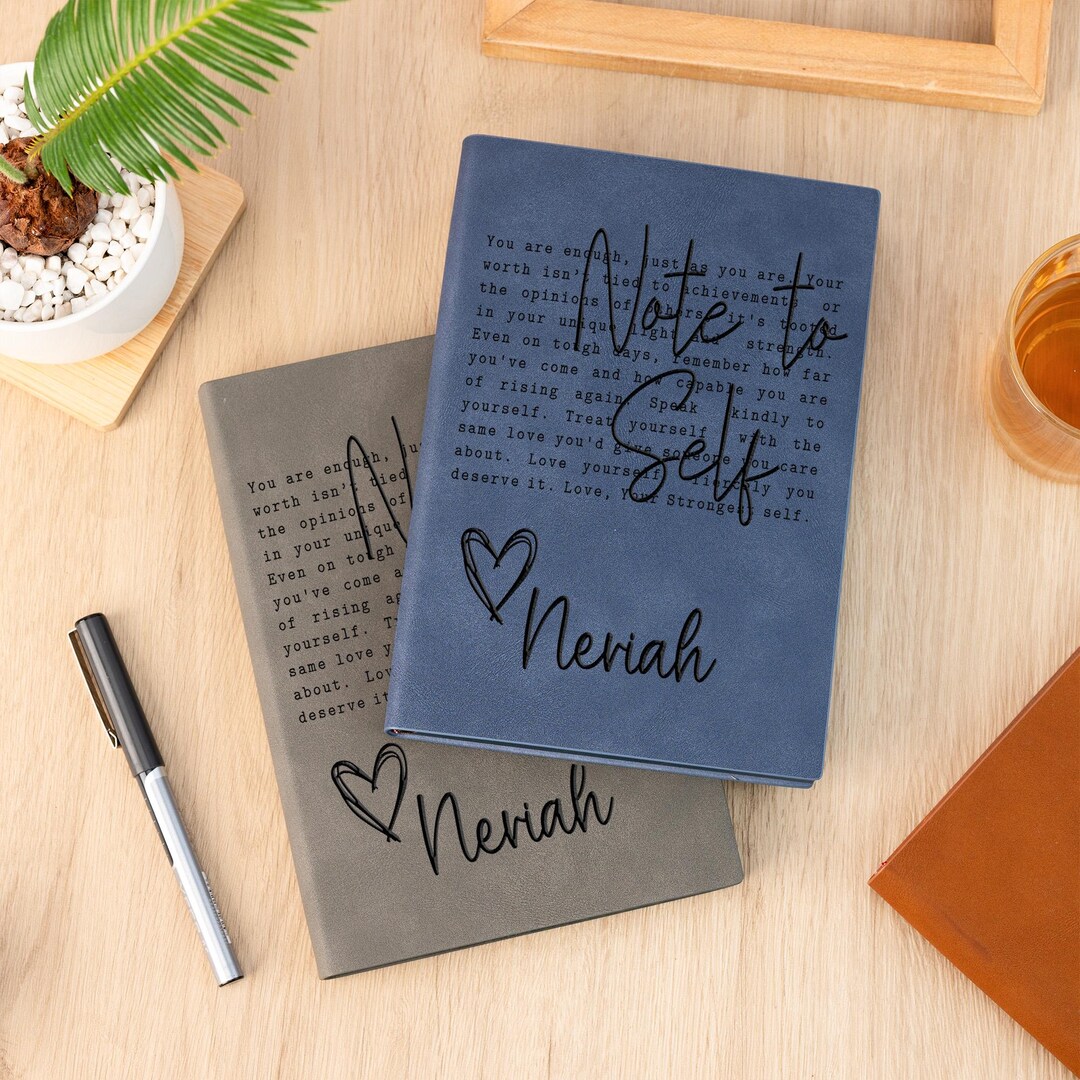 Note to
Self
You are enough, just as you are. Your
worth isn't tied to achievements or
the opinions of others, it's tooted
in your unique light and strength.
Even on tough days, remember how far
you've come and how capable you are
of rising again. Speak kindly to
yourself. Treat yourself with the
same love you'd give someone you care
about. Love yourself fiercely you
deserve it. Love, Your Strongest self.
Neriah
You are enough, ju
worth isn't tied
the opinions of
in your unique
Even on tough
you've come a
of rising ag
yourself. T
same love y
about. Lov
deserve it
Neriah